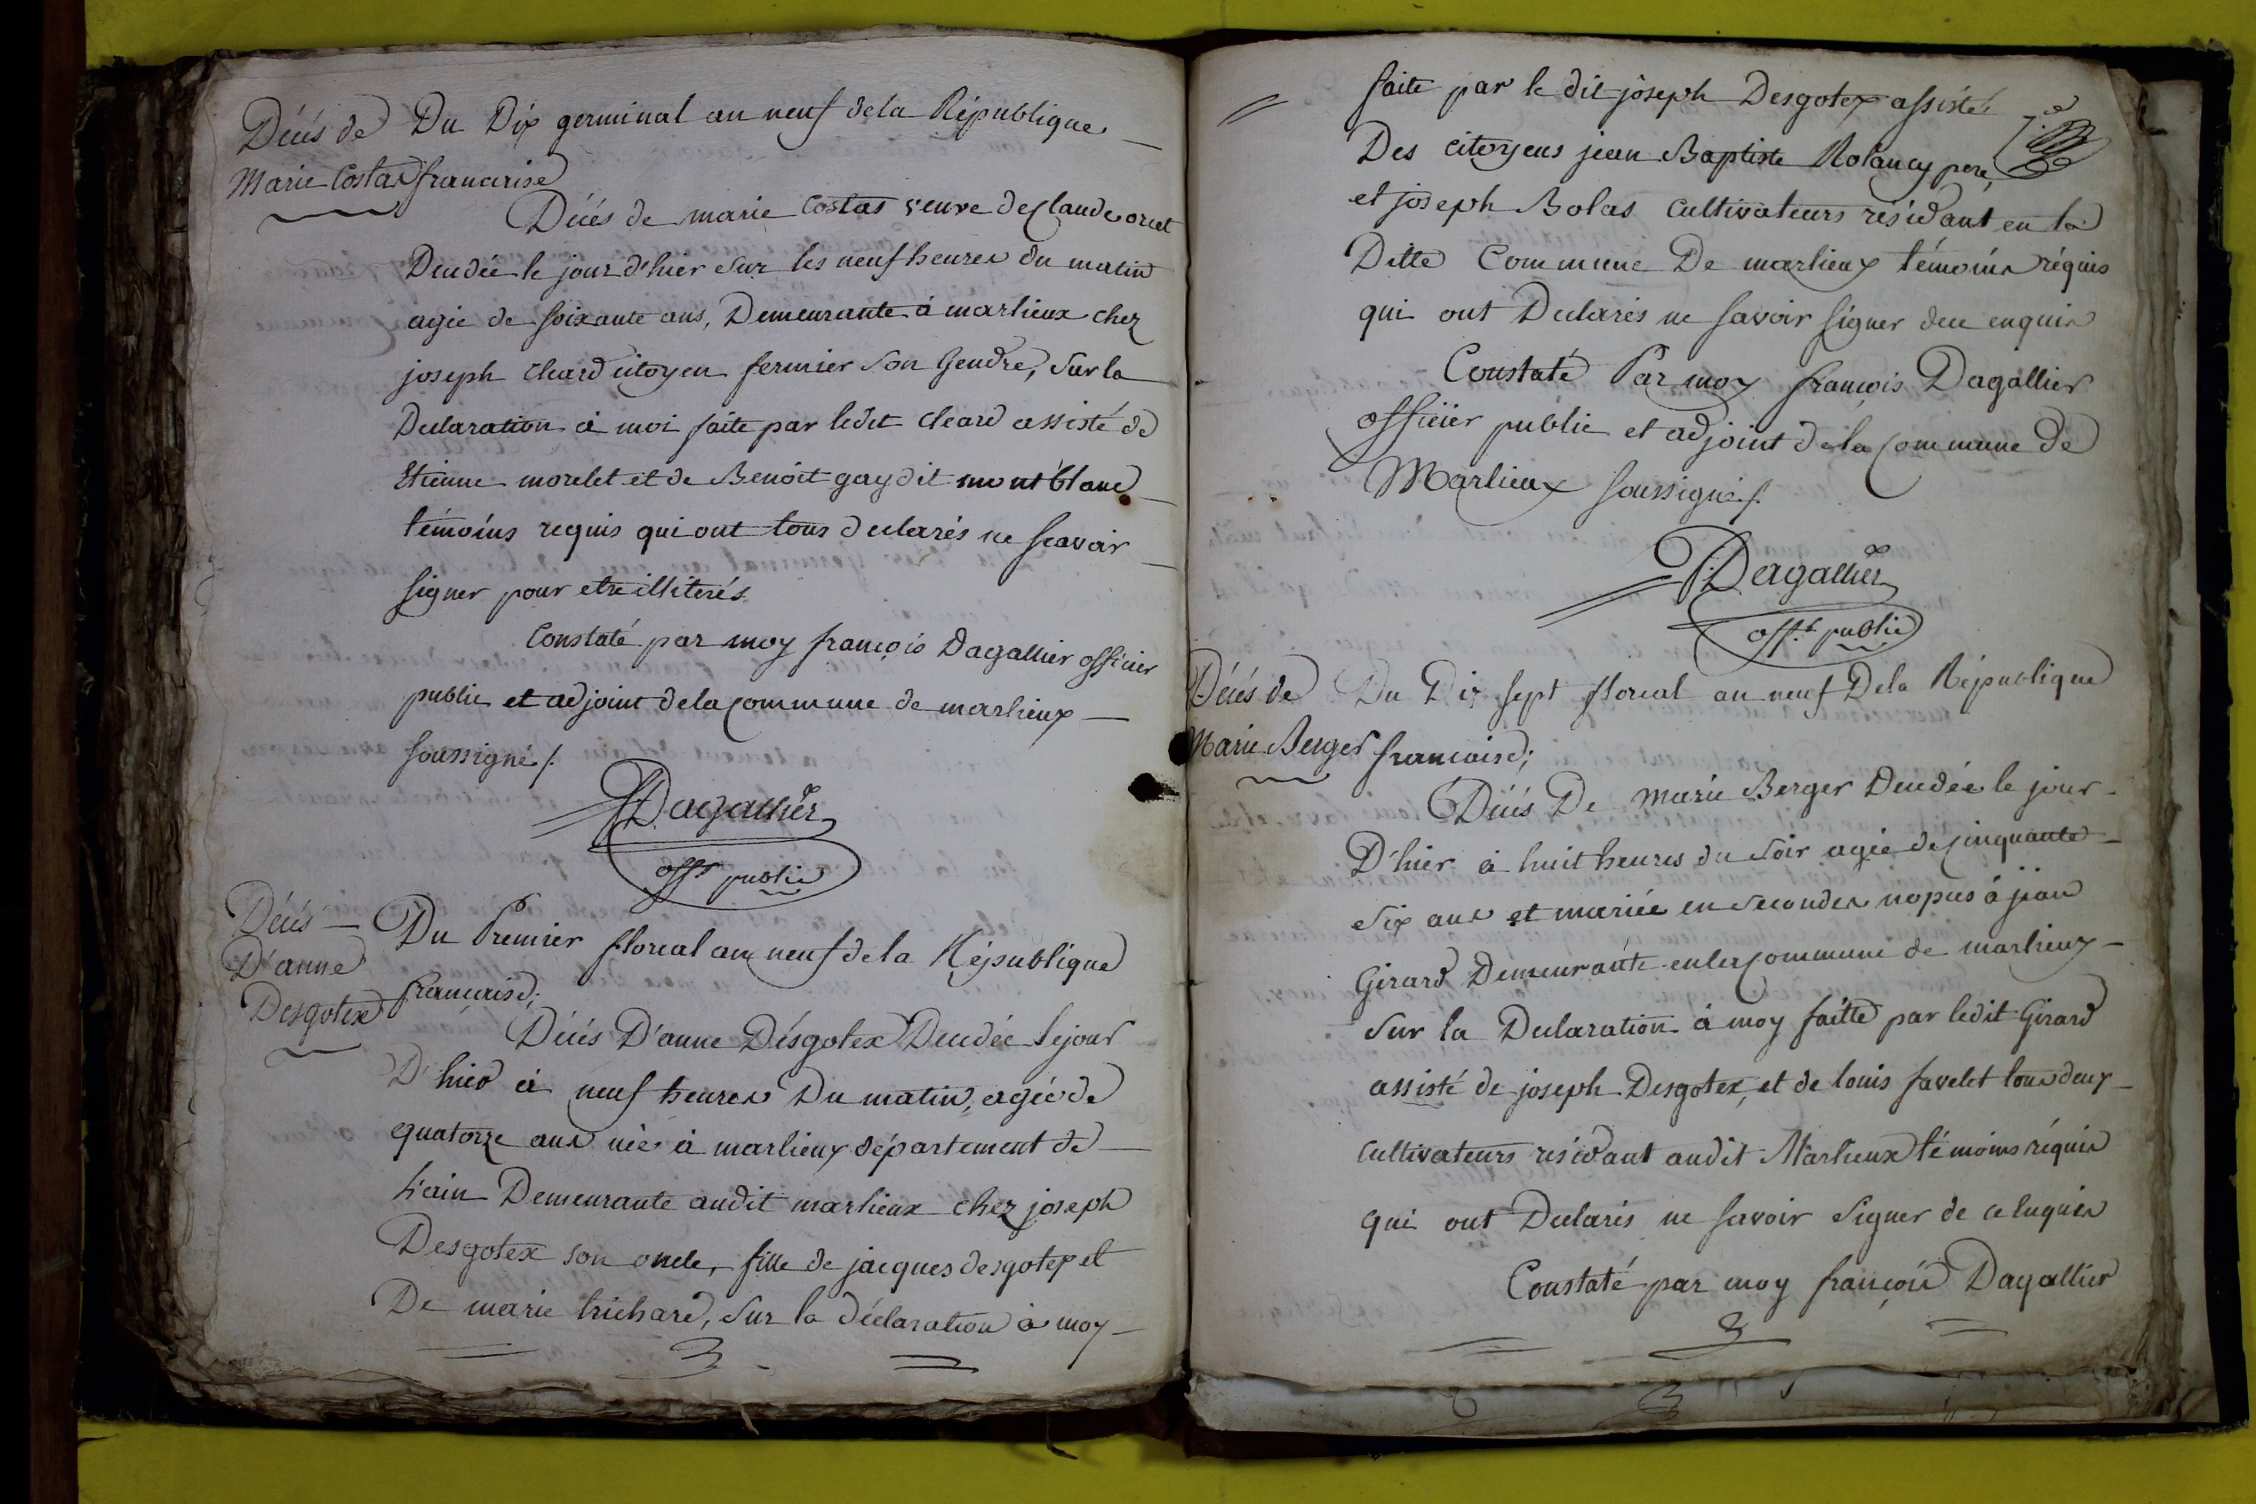 Décés de
Marie Costas
Du Dix germinal an neuf dela République
francaise
Décés de marie Costas veuve de Claude orcet
Decedée le jour d'hier sur les neuf heures du matin
agée de soixante ans, Demeurante à marlieux chez
joseph cleard citoyen fermier son Gendre, sur la
Declaration à moi faite par ledit cleard assisté de
Etienne morelet et de Benoit gay dit mont blanc
témoins requis qui ont tous declarés ne scavoir
signer pour etre illiterés
Constaté par moy françois Dagallier officier
public et adjoint dela Commune de marlieux
soussigné /.
Dagallier
offr public
Décés
D'anne
Desgotex
Du Premier floreal an neuf de la République
française;
Décés D'anne Désgotex Decedée le jour
D'hier à neuf heures Du matin, agée de
quatorze ans née à marlieux département de
l'ain Demeurante audit marlieux chez joseph
Desgotex son oncle, fille de jacques desgotex et
De marie trichard, sur la déclaration à moy
faite par le dit joseph Desgotex assisté
Des citoyens jean Baptiste Rolancy pere,
et joseph Bolas cultivateurs résidant en la
Ditte Commune De marlieux témoins réquis
qui ont Declarés ne savoir signer de ce enquis
Constaté Par moy françois Dagallier
officier public et adjoint de la Commune de
Marlieux soussigné /.
Dagallier
offr public
Décés de
Marie Berger
Du Dix sept floreal an neuf Dela République
francaise;
Décés De marie Berger Decedée le jour
D'hier à huit heures du soir agée de cinquante
six ans et mariée en secondes nopces à jean
Girard Demeurante en la Commune de marlieux
sur la Declaration à moy faitte par ledit Girard
assisté de joseph Desgotex, et de louis favelet tous deux
cultivateurs residant audit Marlieux témoins réquis
qui ont Declarés ne savoir signer de ce enquis
Constaté par moy françois Dagallier